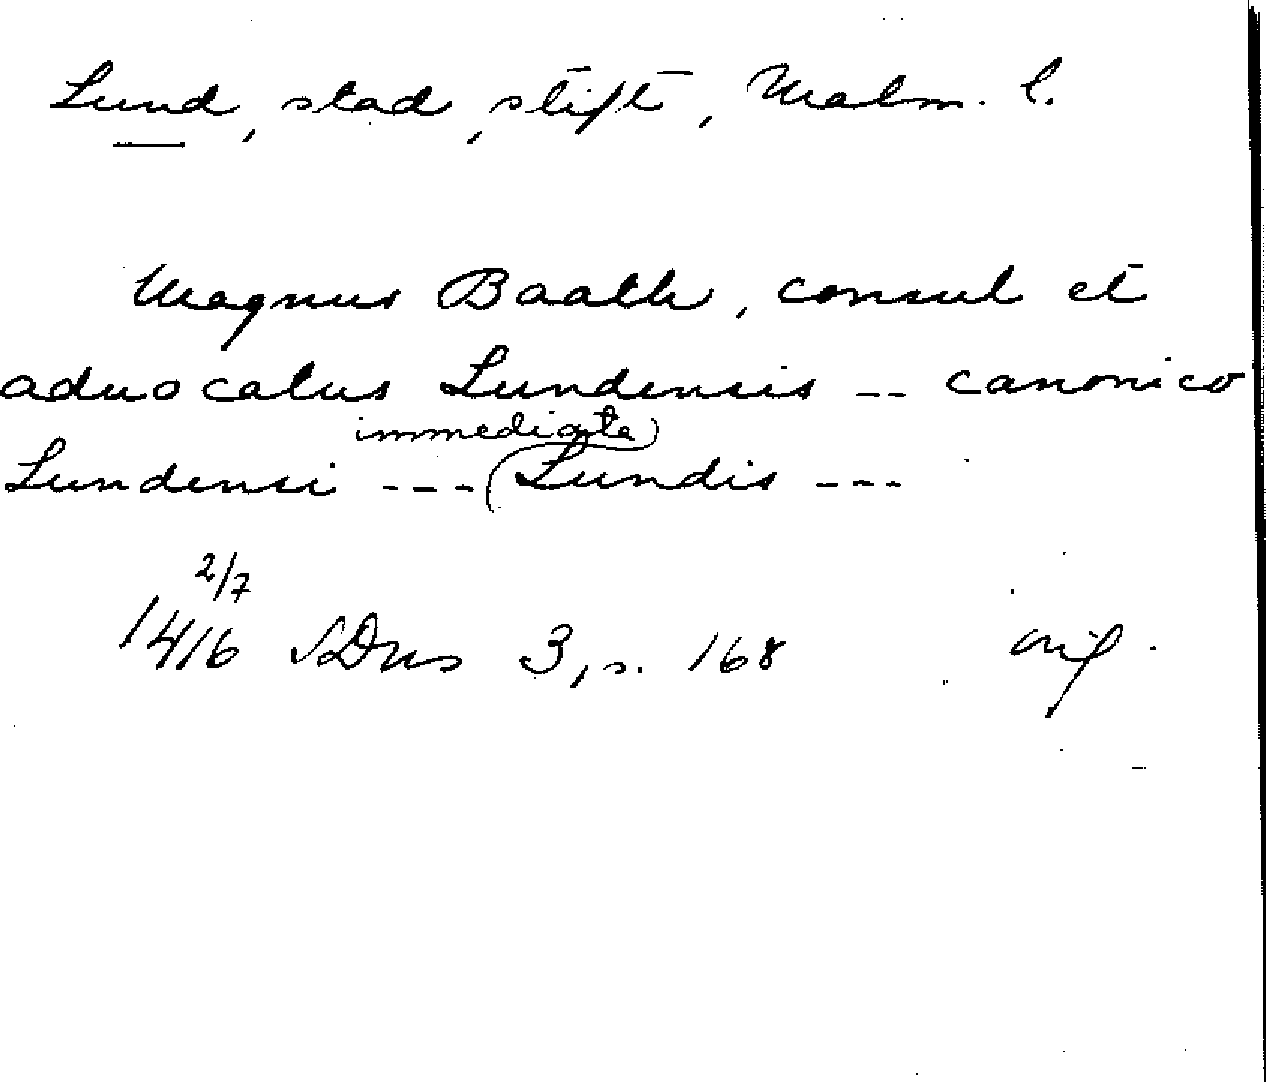 Lund, stad, stift, Malm. l.
Magnus Baath, consul et
aduocatus Lundensis -- canonico
immediate
Lundensi --- Lundis ---
2/7
1416 SDns 3, s. 168 orig.